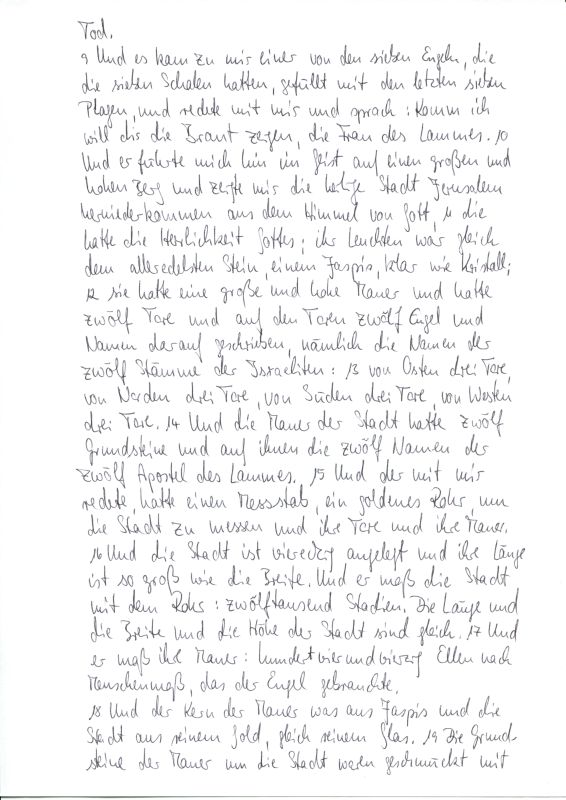 Tod.
9 Und es kam zu mir einer von den sieben Engeln, die
die sieben Schalen hatten, gefüllt mit den letzten sieben
Plagen, und redete mit mir und sprach: Komm ich
will dir die Braut zeigen, die Frau des Lammes. 10
Und er führte mich hin im Geist auf einen großen und
hohen Berg und zeigte mir die heilige Stadt Jerusalem
herniederkommen aus dem Himmel von Gott, 11 die
hatte die Herrlichkeit Gottes; ihr Leuchten war gleich
dem alleredelsten Stein, einem Jaspis, klar wie Kristall;
12 sie hatte eine große und hohe Mauer und hatte
zwölf Tore und auf den Toren zwölf Engel und
Namen darauf geschrieben, nämlich die Namen der
zwölf Stämme der Israeliten: 13 von Osten drei Tore,
von Norden drei Tore, von Süden drei Tore, von Westen
drei Tore. 14 Und die Mauer der Stadt hatte zwölf
Grundsteine und auf ihnen die zwölf Namen der
zwölf Apostel des Lammes. 15 Und der mit mir
redete, hatte einen Messstab, ein goldenes Rohr, um
die Stadt zu messen und ihre Tore und ihre Mauer.
16 Und die Stadt ist viereckig angelegt und ihre Länge
ist so groß wie die Breite. Und er maß die Stadt
mit dem Rohr: zwölftausend Stadien. Die Länge und
die Breite und die Höhe der Stadt sind gleich. 17 Und
er maß ihre Mauer: hundertvierundvierzig Ellen nach
Menschenmaß, das der Engel gebrauchte.
18 Und der Kern der Mauer was aus Jaspis und die
Stadt aus reinem Gold, gleich reinem Glas. 19 Die Grund-
steine der Mauer um die Stadt waren geschmückt mit